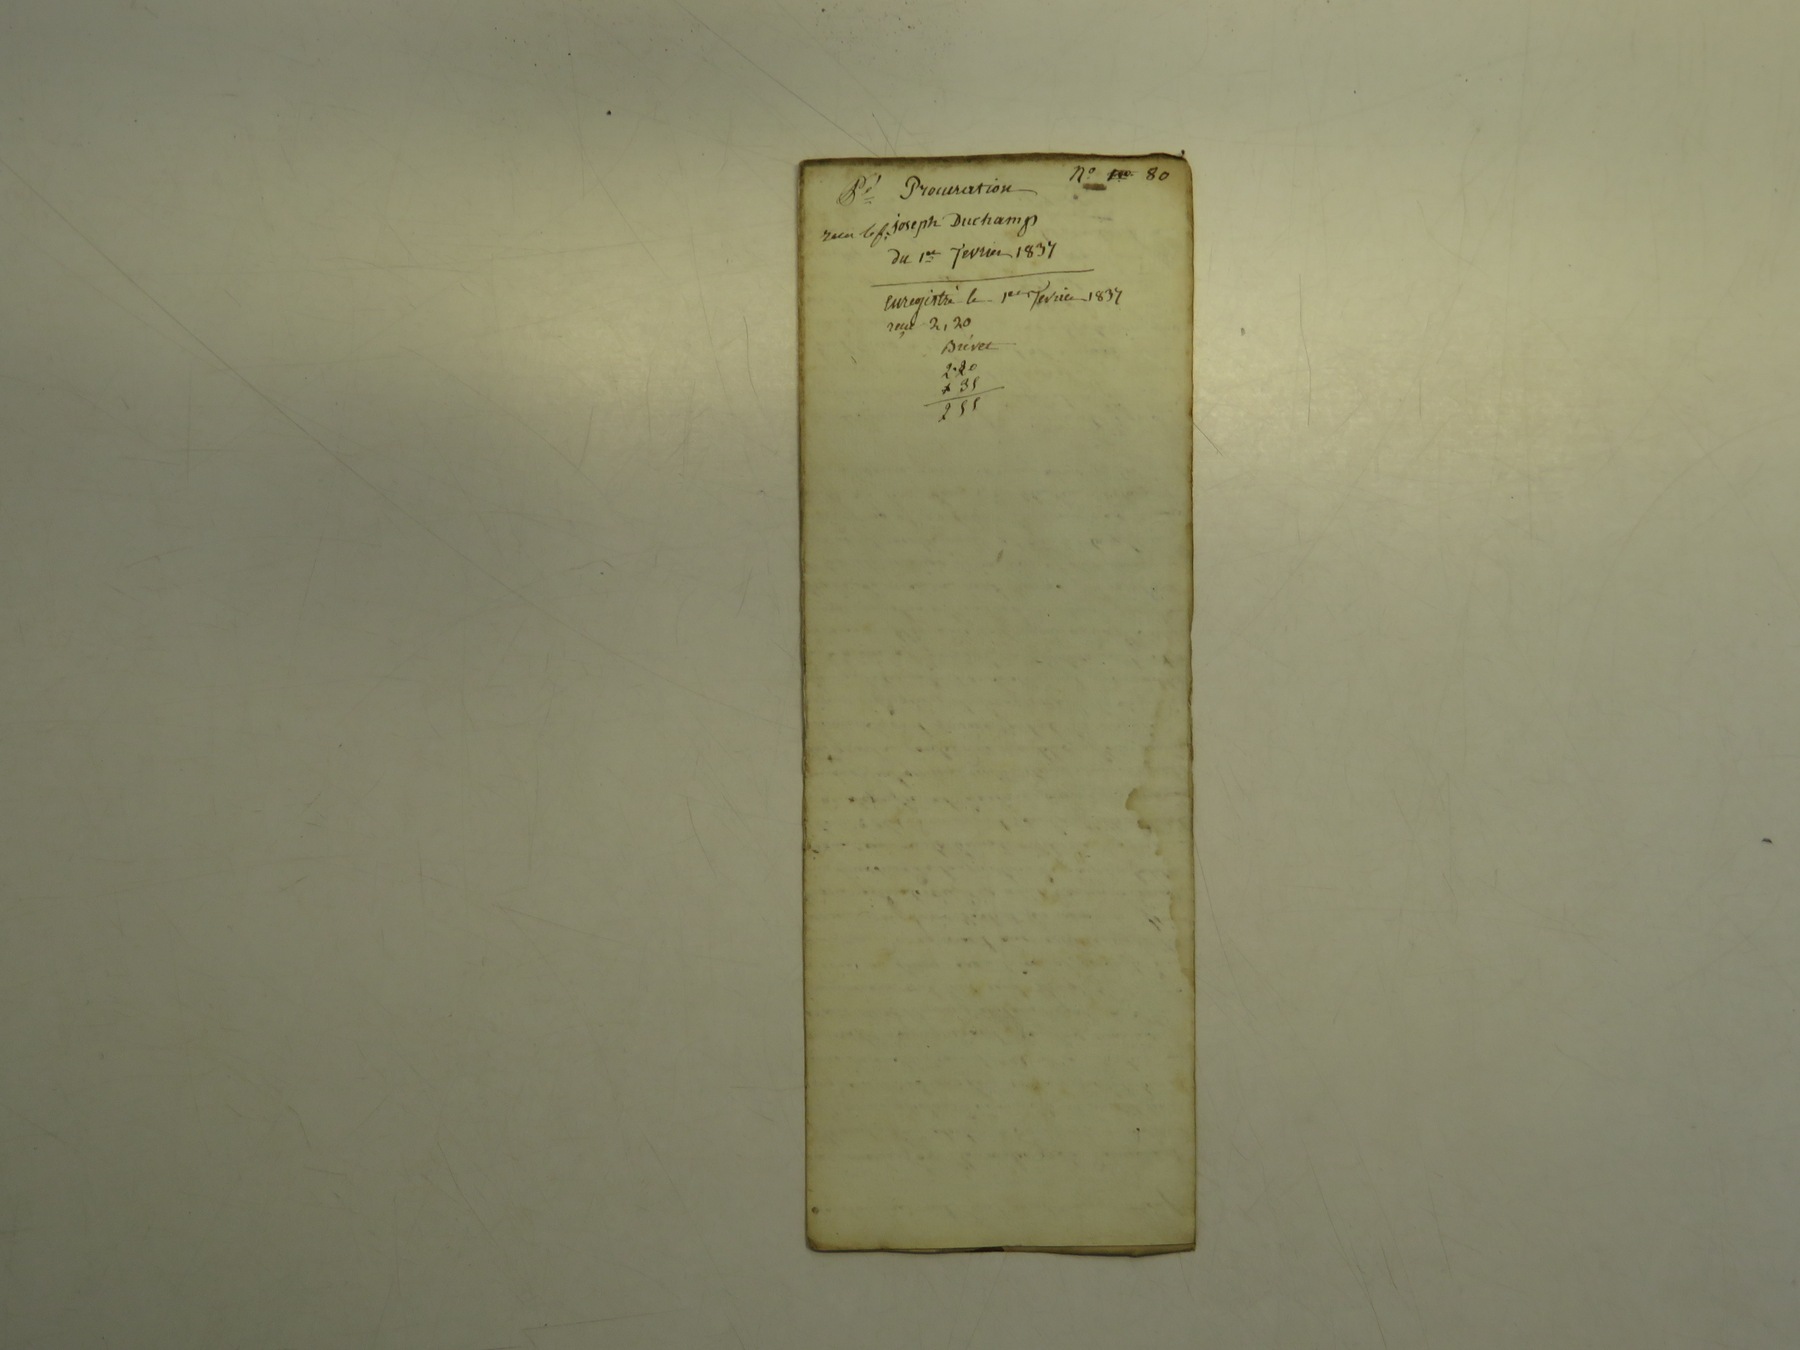 Nº 80
Pé Procuration
Joseph Duchamp
du 1er fevrier 1837
Enregistré le 1er fevrier 1837
reçu 2,20
Brévet
2.20
35
2 55